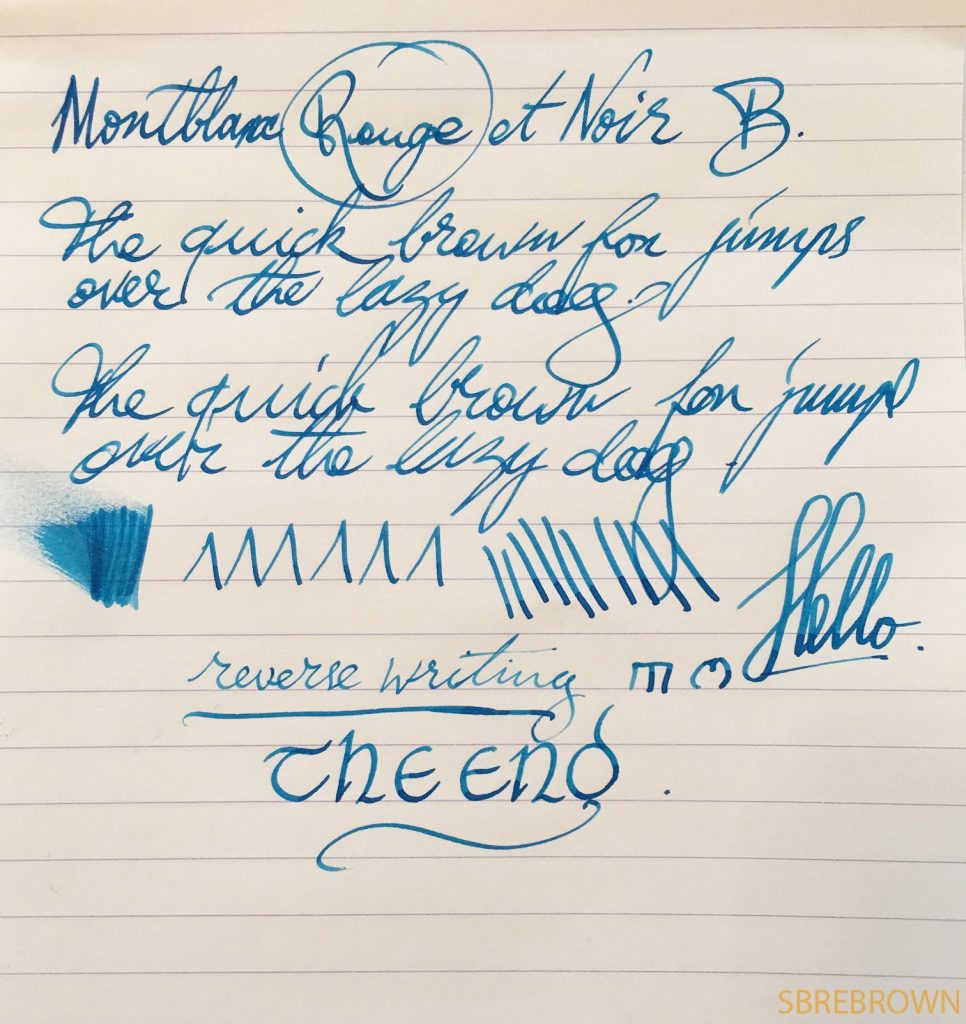 Montblanc Rouge et Noir B.
The quick brown fox jumps
over the lazy dog.
The quick brown fox jumps
over the lazy dog.
Hello.
reverse writing
THE END.
SBREBROWN